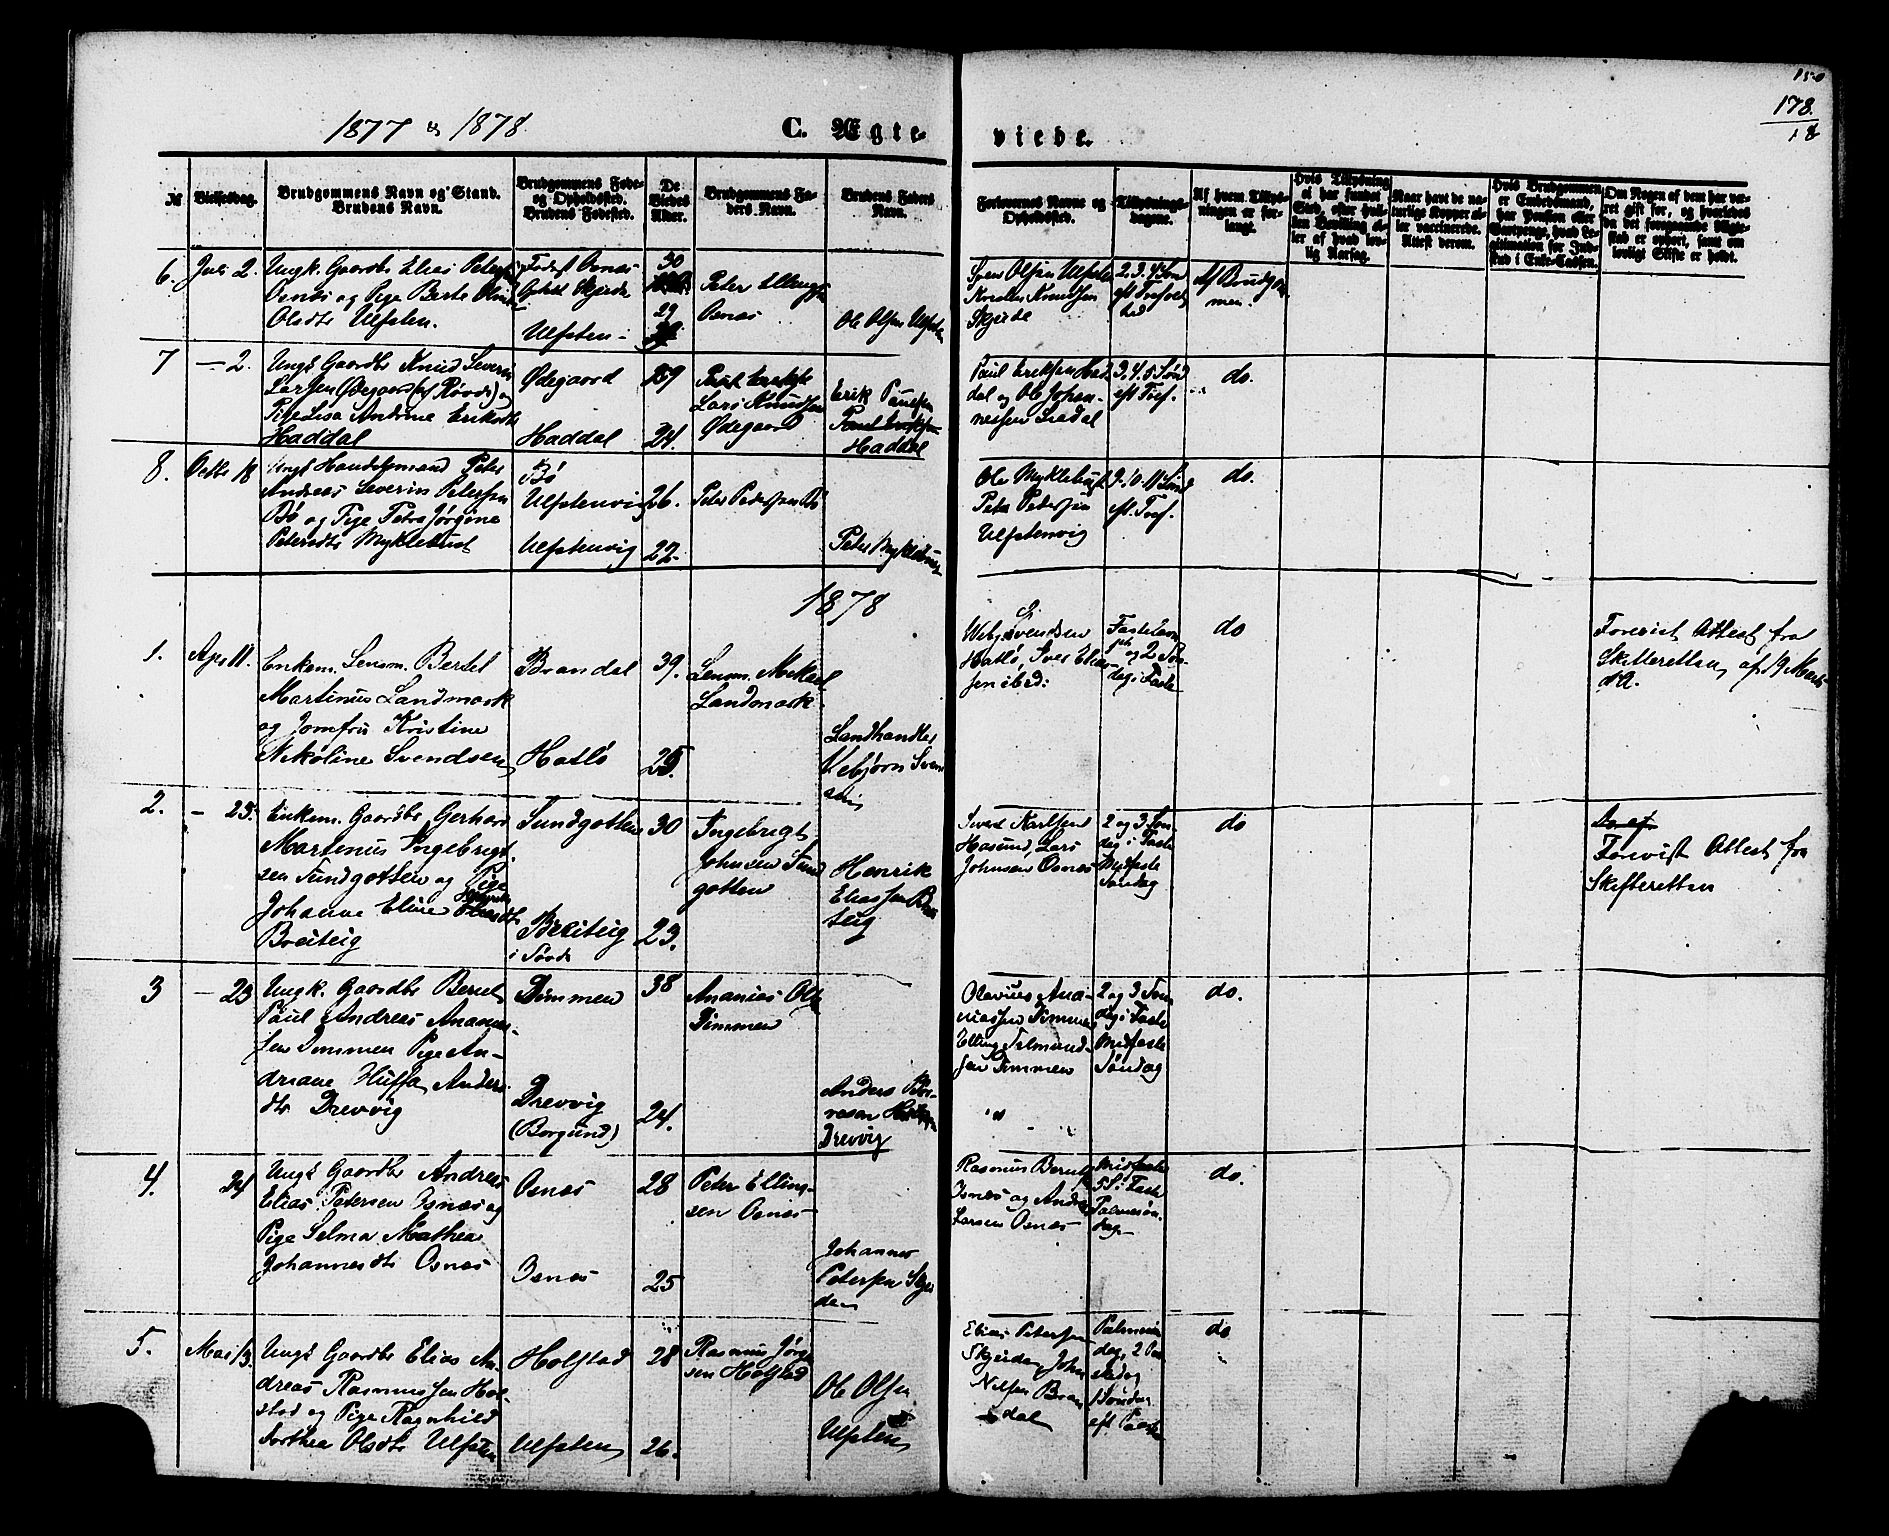 150
178.
18
1877 & 1878.
C. Ægte-
viede.
№
Vielsesdag.
Brudgommens Navn og Stand.
Brudens Navn.
Brudgommens Føde-
og Opholdssted.
Brudens Fødested.
De
Viedes
Alder.
Brudgommens Fa-
ders Navn.
Brudens Faders
Navn.
Forlovernes Navne og
Opholdssted.
Tillysnings-
dagene.
Af hvem Tillys-
ningen er for-
langt.
Hvis Tillysning
ei har fundet
Sted, efter hvil-
ken Bevilling el-
ler af hvad lov-
lig Aarsag.
Naar have de na-
turlige Kopper el-
ler vaccinerede.
Attest derom.
Hvis Brudgommen
er Embedsmand,
har Pension eller
Vartpenge, hvad Le-
gitimation for Ind-
skud i Enke-Cassen.
Om Nogen af dem har væ-
ret gift før, og hvorledes
da det foregaaende Ægte-
skab er ophørt, samt om
lovligt Skifte er holdt.
6.
Juli 2.
Ungk. Gaardbr Elias Peters
Osnæs og Pige Berte Oline
Olsdtr Ulfsten.
Født Osnæs
Ophold Skjeide
Ulfsten
30
29
Peter Ellings
Osnæs
Ole Olsen Ulfsten
Sven Olsen Ulfsten
Knudsen
Skjeide
2. 3. 4 Søn
eft Trefoldig
hed
Af Brudgom
men.
7
— 2.
Ungk Gaardbr Knud Severin
Larsen Ødegaard (af Røvde) og
Pige Lisa Andrine Eriksdtr
Haddal
Ødegaard
Haddal
29
24.
Lars Knudsen
Ødegaard
Erik Paulsen
Haddal
Paul Eriksen Had
dal og Ole Johan-
nessen Liadal
3. 4. 5 Søn
eft Tref.
do.
8.
Octbr 18
Ungk Handelsmand Peter
Andreas Severin Petersen
Bø og Pige Petra Jørgine
Petersdtr Myklebust
Bø
Ulfstenvig
Ulfstenvig
26.
22.
Peter Petersen Bø
Peter Myklebust
Ole Myklebust
Peter Petersen
Ulfstenvig
9. 10. 11 Sønd
eft. Tref.
do.
1878
1.
Apr 11.
Enkem. Lensm. Bertel
Martinus Landmark
og Jomfru Kristine
Nikoline Svendsen
Brandal
Hatlø
39.
25.
Lensm. Mikael
Landmark
Landhandler
Vebjørn Sven
sen
Webj Svendsen
Hatlø, Iver Elias-
sen ibid:
Fastelavn
og 2 Søn-
dag i Faste
do
Forevist Attest fra
Skifteretten af 19 Marts
d A.
2.
— 23.
Enkem. Gaardbr Gerhard
Martinus Ingebrigt-
sen Sundgotten og Pige
Johanne Eline
Breiteig
Sundgotten
Breiteig
i Søvde
30
23.
Ingebrigt
Johnsen Sund
gotten
Henrik
Eliassen Brei
teig
Sivert Karlsen
Hasund, Lars
Johnsen Osnæs
2 og 3 Søn-
dag i Faste
Midfaste
Søndag
do
Forevist Attest fra
Skifteretten
3
— 23
Ungk. Gaardbr Bernt
Paul Andreas Ananias-
sen Dimmen Pige An-
driane Huffa Anders-
dtr Drevvig
Dimmen
Drevvig
(Borgund)
38
24.
Ananias Ols
Dimmen
Anders
Drevvig
Olavus Ana-
niassen Dimmen
Elling Salmund-
sen Dimmen
2 og 3 Søn
dag i Faste
Midfaste
Søndag
do.
4.
24
Ungk Gaardbr Andreas
Elias Petersen Osnæs og
Pige Selma Mathea
Johannesdtr Osnæs
Osnæs
Osnæs
28
25
Peter Elling-
sen Osnæs
Johannes
Petersen Skjei
den
Rasmus Bernts
Osnæs og Andr
Larsen Osnæs
Midfaste
5 S. i Faste
Palmesøn-
dag
do.
5.
Mai 13.
Ungk Gaardbr Elias An-
dreas Rasmussen Hol-
stad og Pige Ragnhild
Dorthea Olsdtr Ulfsten
Holstad
Ulfsten
28
26.
Rasmus Jørg
sen Holstad
Ole Olsen
Ulfsten
Elias Petersen
Skjeiden, John
Nilsen Bran
dal
Palmesøn
dag, 2 Paa
skedag
Søndag
eft Paaske
do